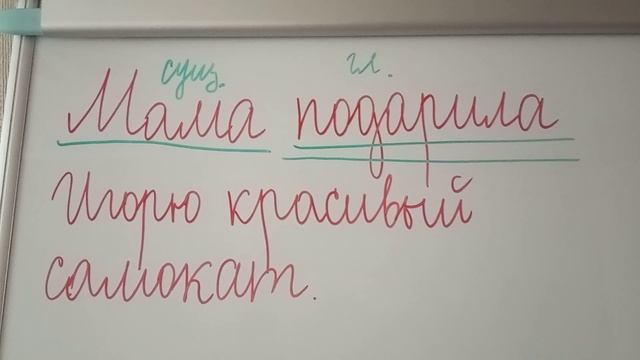 сущ. гл.
Мама подарила
Игорю красивый
самокат.